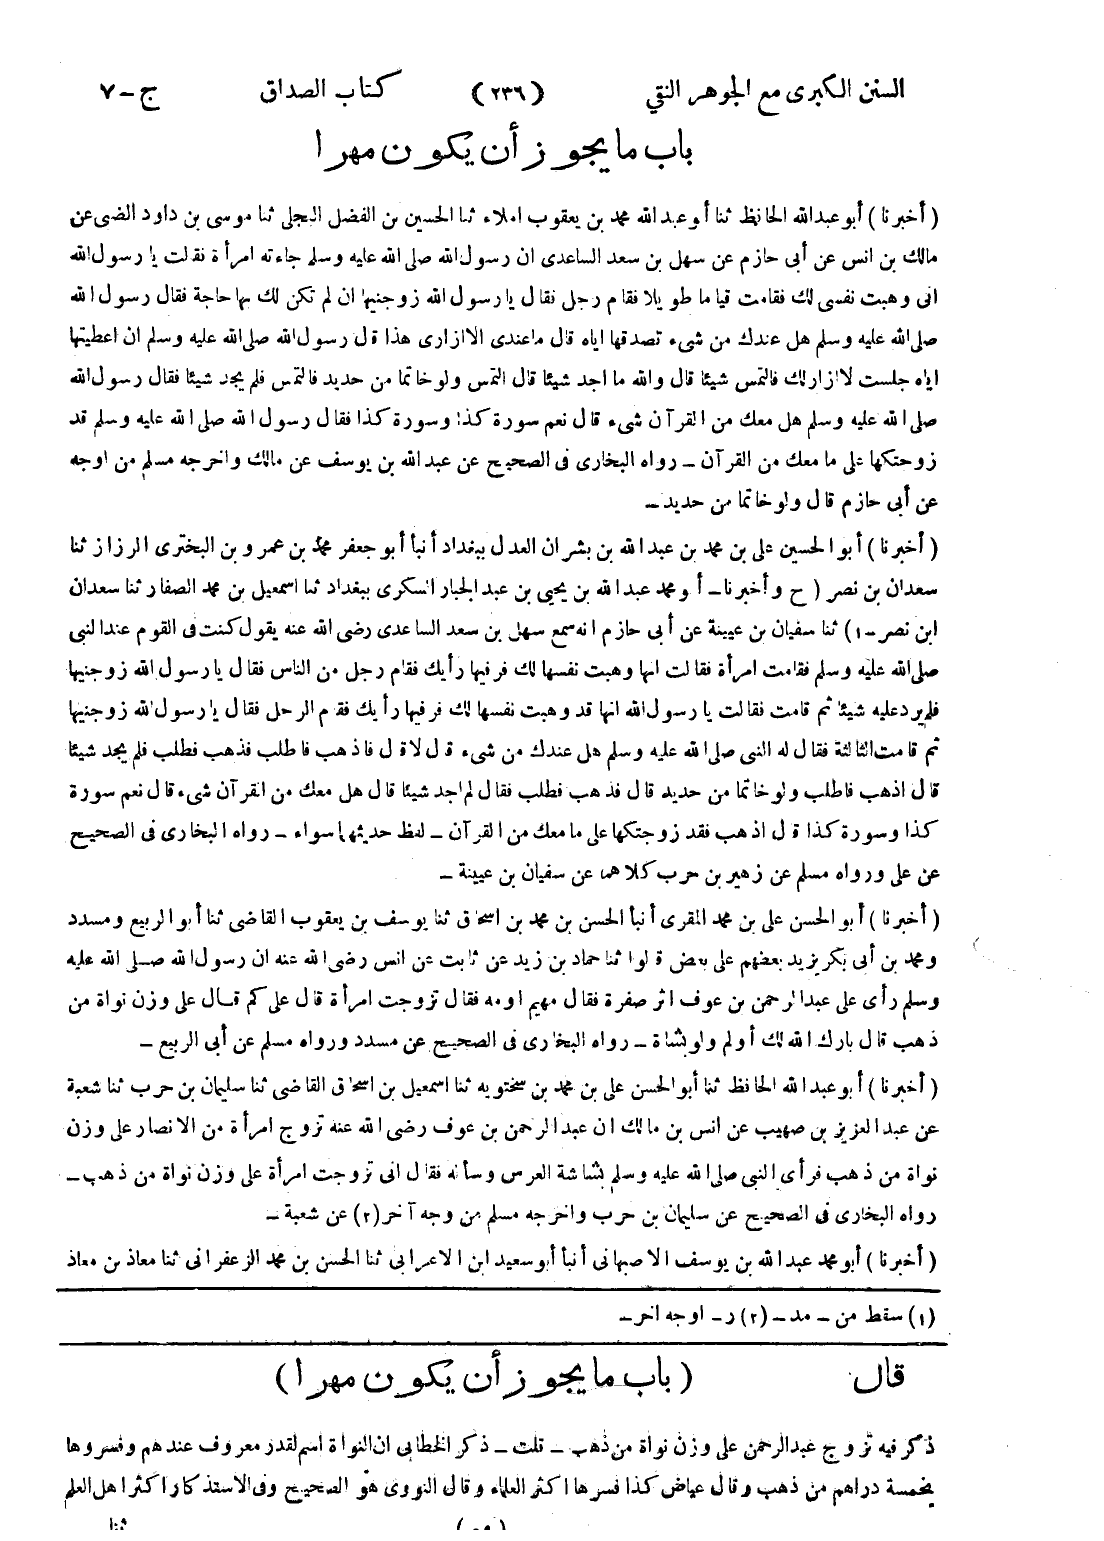 السنن الكبرى مع الجوهر النقي (٢٣٦) كتاب الصداق ج-٧
باب ما يجوز أن يكون مهرا
(أخبرنا) أبو عبدالله الحافظ ثنا أبو عبدالله محمد بن يعقوب املاء ثنا الحسين بن الفضل البجلى ثنا موسى بن داود الضبى عن
مالك بن انس عن أبى حازم عن سهل بن سعد الساعدى ان رسول الله صلى الله عليه وسلم جاءته امرأة فقالت يا رسول الله
انى وهبت نفسى لك فقامت قياما طويلا فقام رجل فقال يا رسول الله زوجنيها ان لم تكن لك بها حاجة فقال رسول الله
صلى الله عليه وسلم هل عندك من شىء تصدقها اياه قال ما عندى الا ازارى هذا قال رسول الله صلى الله عليه وسلم ان اعطيتها
اياه جلست لا ازار لك فالتمس شيئا قال والله ما اجد شيئا قال التمس ولو خاتما من حديد فالتمس فلم يجد شيئا فقال رسول الله
صلى الله عليه وسلم هل معك من القرآن شىء قال نعم سورة كذا وسورة كذا فقال رسول الله صلى الله عليه وسلم قد
زوجتكها على ما معك من القرآن ــ رواه البخارى فى الصحيح عن عبد الله بن يوسف عن مالك واخرجه مسلم من اوجه
عن أبى حازم قال ولو خاتما من حديد ــ
(أخبرنا) أبو الحسين على بن محمد بن عبد الله بن بشران العدل ببغداد أنبأ أبو جعفر محمد بن عمرو بن البخترى الرزاز ثنا
سعدان بن نصر (ح وأخبرنا ــ أبو محمد عبد الله بن يحيى بن عبد الجبار السكرى ببغداد ثنا اسمعيل بن محمد الصفار ثنا سعدان
ابن نصر ــ ١) ثنا سفيان بن عيينة عن أبى حازم انه سمع سهل بن سعد الساعدى رضى الله عنه يقول كنت فى القوم عند النبى
صلى الله عليه وسلم فقامت امرأة فقالت انها وهبت نفسها لك فر فيها رأيك فقام رجل من الناس فقال يا رسول الله زوجنيها
فلم يرد عليه شيئا ثم قامت فقالت يا رسول الله انها قد وهبت نفسها لك فر فيها رأيك فقام الرجل فقال يا رسول الله زوجنيها
ثم قامت الثالثة فقال له النبى صلى الله عليه وسلم هل عندك من شىء قال لا قال فاذهب فاطلب فذهب فطلب فلم يجد شيئا
قال اذهب فاطلب ولو خاتما من حديد قال فذهب فطلب فقال لم اجد شيئا قال هل معك من القرآن شىء قال نعم سورة
كذا وسورة كذا قال اذهب فقد زوجتكها على ما معك من القرآن ــ لفظ حديثهما سواء ــ رواه البخارى فى الصحيح
عن على ورواه مسلم عن زهير بن حرب كلاهما عن سفيان بن عيينة ــ
(أخبرنا) أبو الحسن على بن محمد المقرى أنبأ الحسن بن محمد بن اسحاق ثنا يوسف بن يعقوب القاضى ثنا أبو الربيع ومسدد
ومحمد بن أبى بكر يزيد بعضهم على بعض قالوا ثنا حماد بن زيد عن ثابت عن انس رضى الله عنه ان رسول الله صلى الله عليه
وسلم رأى على عبد الرحمن بن عوف اثر صفرة فقال مهيم او مه فقال تزوجت امرأة قال على كم قال على وزن نواة من
ذهب قال بارك الله لك أولم ولو بشاة ــ رواه البخارى فى الصحيح عن مسدد ورواه مسلم عن أبى الربيع ــ
(أخبرنا) أبو عبد الله الحافظ ثنا أبو الحسن على بن محمد بن سختويه ثنا اسمعيل بن اسحاق القاضى ثنا سليمان بن حرب ثنا شعبة
عن عبد العزيز بن صهيب عن انس بن مالك ان عبد الرحمن بن عوف رضى الله عنه تزوج امرأة من الانصار على وزن
نواة من ذهب فرأى النبى صلى الله عليه وسلم بشاشة العرس وسأله فقال انى تزوجت امرأة على وزن نواة من ذهب ــ
رواه البخارى فى الصحيح عن سليمان بن حرب واخرجه مسلم من وجه آخر (٢) عن شعبة ــ
(أخبرنا) أبو محمد عبد الله بن يوسف الاصبهانى أنبأ أبو سعيد ابن الاعرابى ثنا الحسن بن محمد الزعفرانى ثنا معاذ بن معاذ
(١) سقط من ــ مد ــ (٢) ر ــ اوجه اخر ــ
قال (باب ما يجوز أن يكون مهرا)
ذكر فيه تزوج عبد الرحمن على وزن نواة من ذهب ــ قلت ــ ذكر الخطابى ان النواة اسم لقدر معروف عندهم وفسروها
بخمسة دراهم من ذهب وقال عياض كذا فسرها اكثر العلماء وقال النووى هو الصحيح وفى الاستذكار اكثر اهل العلم